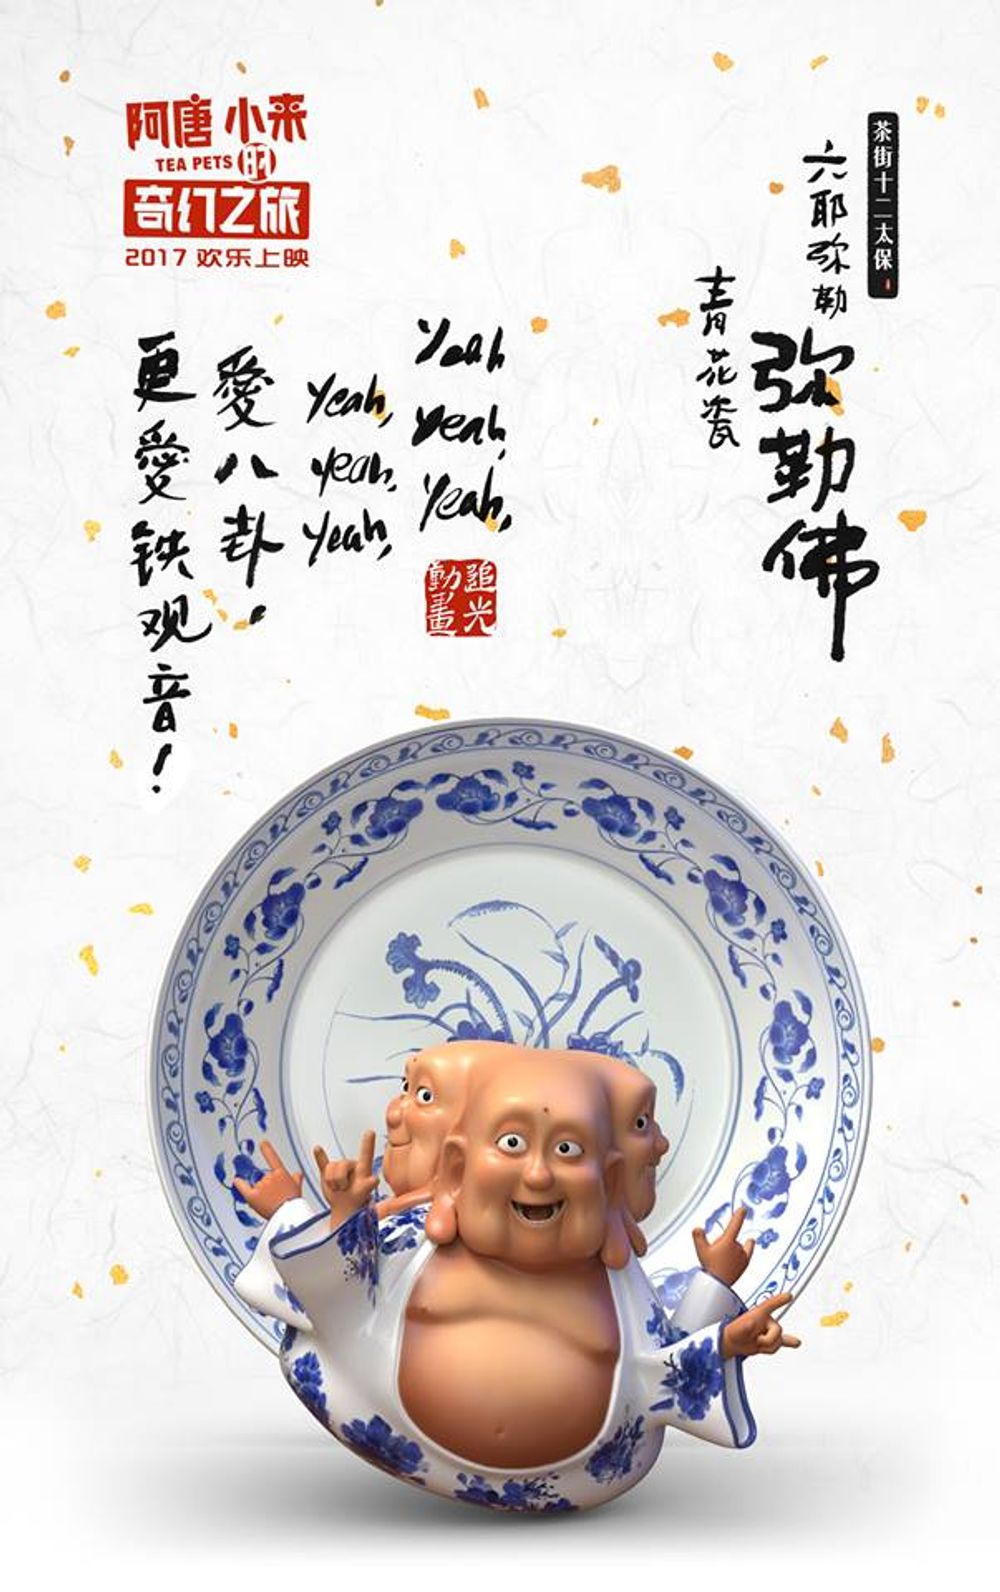 阿唐 小来
TEA PETS 的
奇幻之旅
2017 欢乐上映
茶街十二太保
六耶弥勒
弥勒佛
青花瓷
Yeah
yeah,
Yeah,
Yeah,
yeah,
Yeah,
愛八卦,
更愛铁观音!
追光
動畫